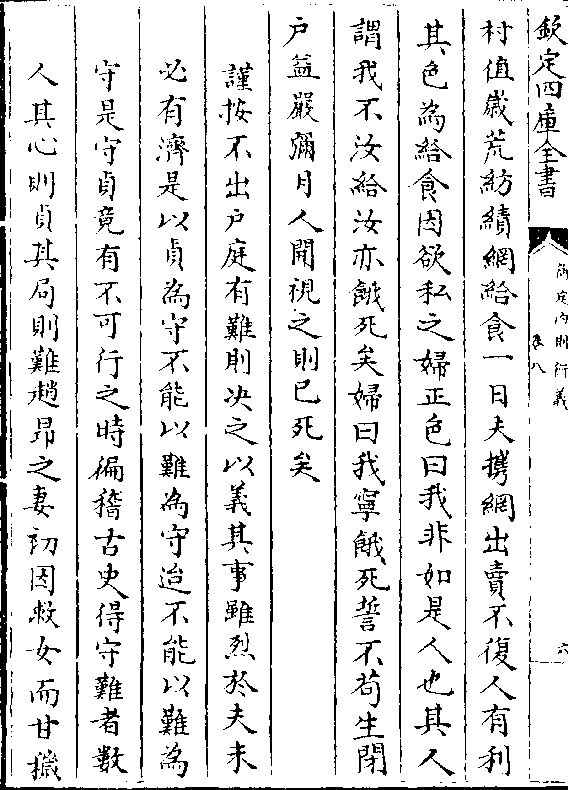 欽定四庫全書
御定內則衍義
卷八
六
村值歲荒紡績網給食一日夫攜網出賣不復人有利
其色為給食因欲私之婦正色曰我非如是人也其人
謂我不汝給汝亦餓死矣婦曰我寧餓死誓不苟生閉
户益嚴彌月人開視之則已死矣
謹按不出户庭有難則决之以義其事雖烈於夫未
必有濟是以貞為守不能以難為守迨不能以難為
守是守貞竟有不可行之時徧稽古史得守難者數
人其心則貞其局則難趙昂之妻初因救女而甘穢